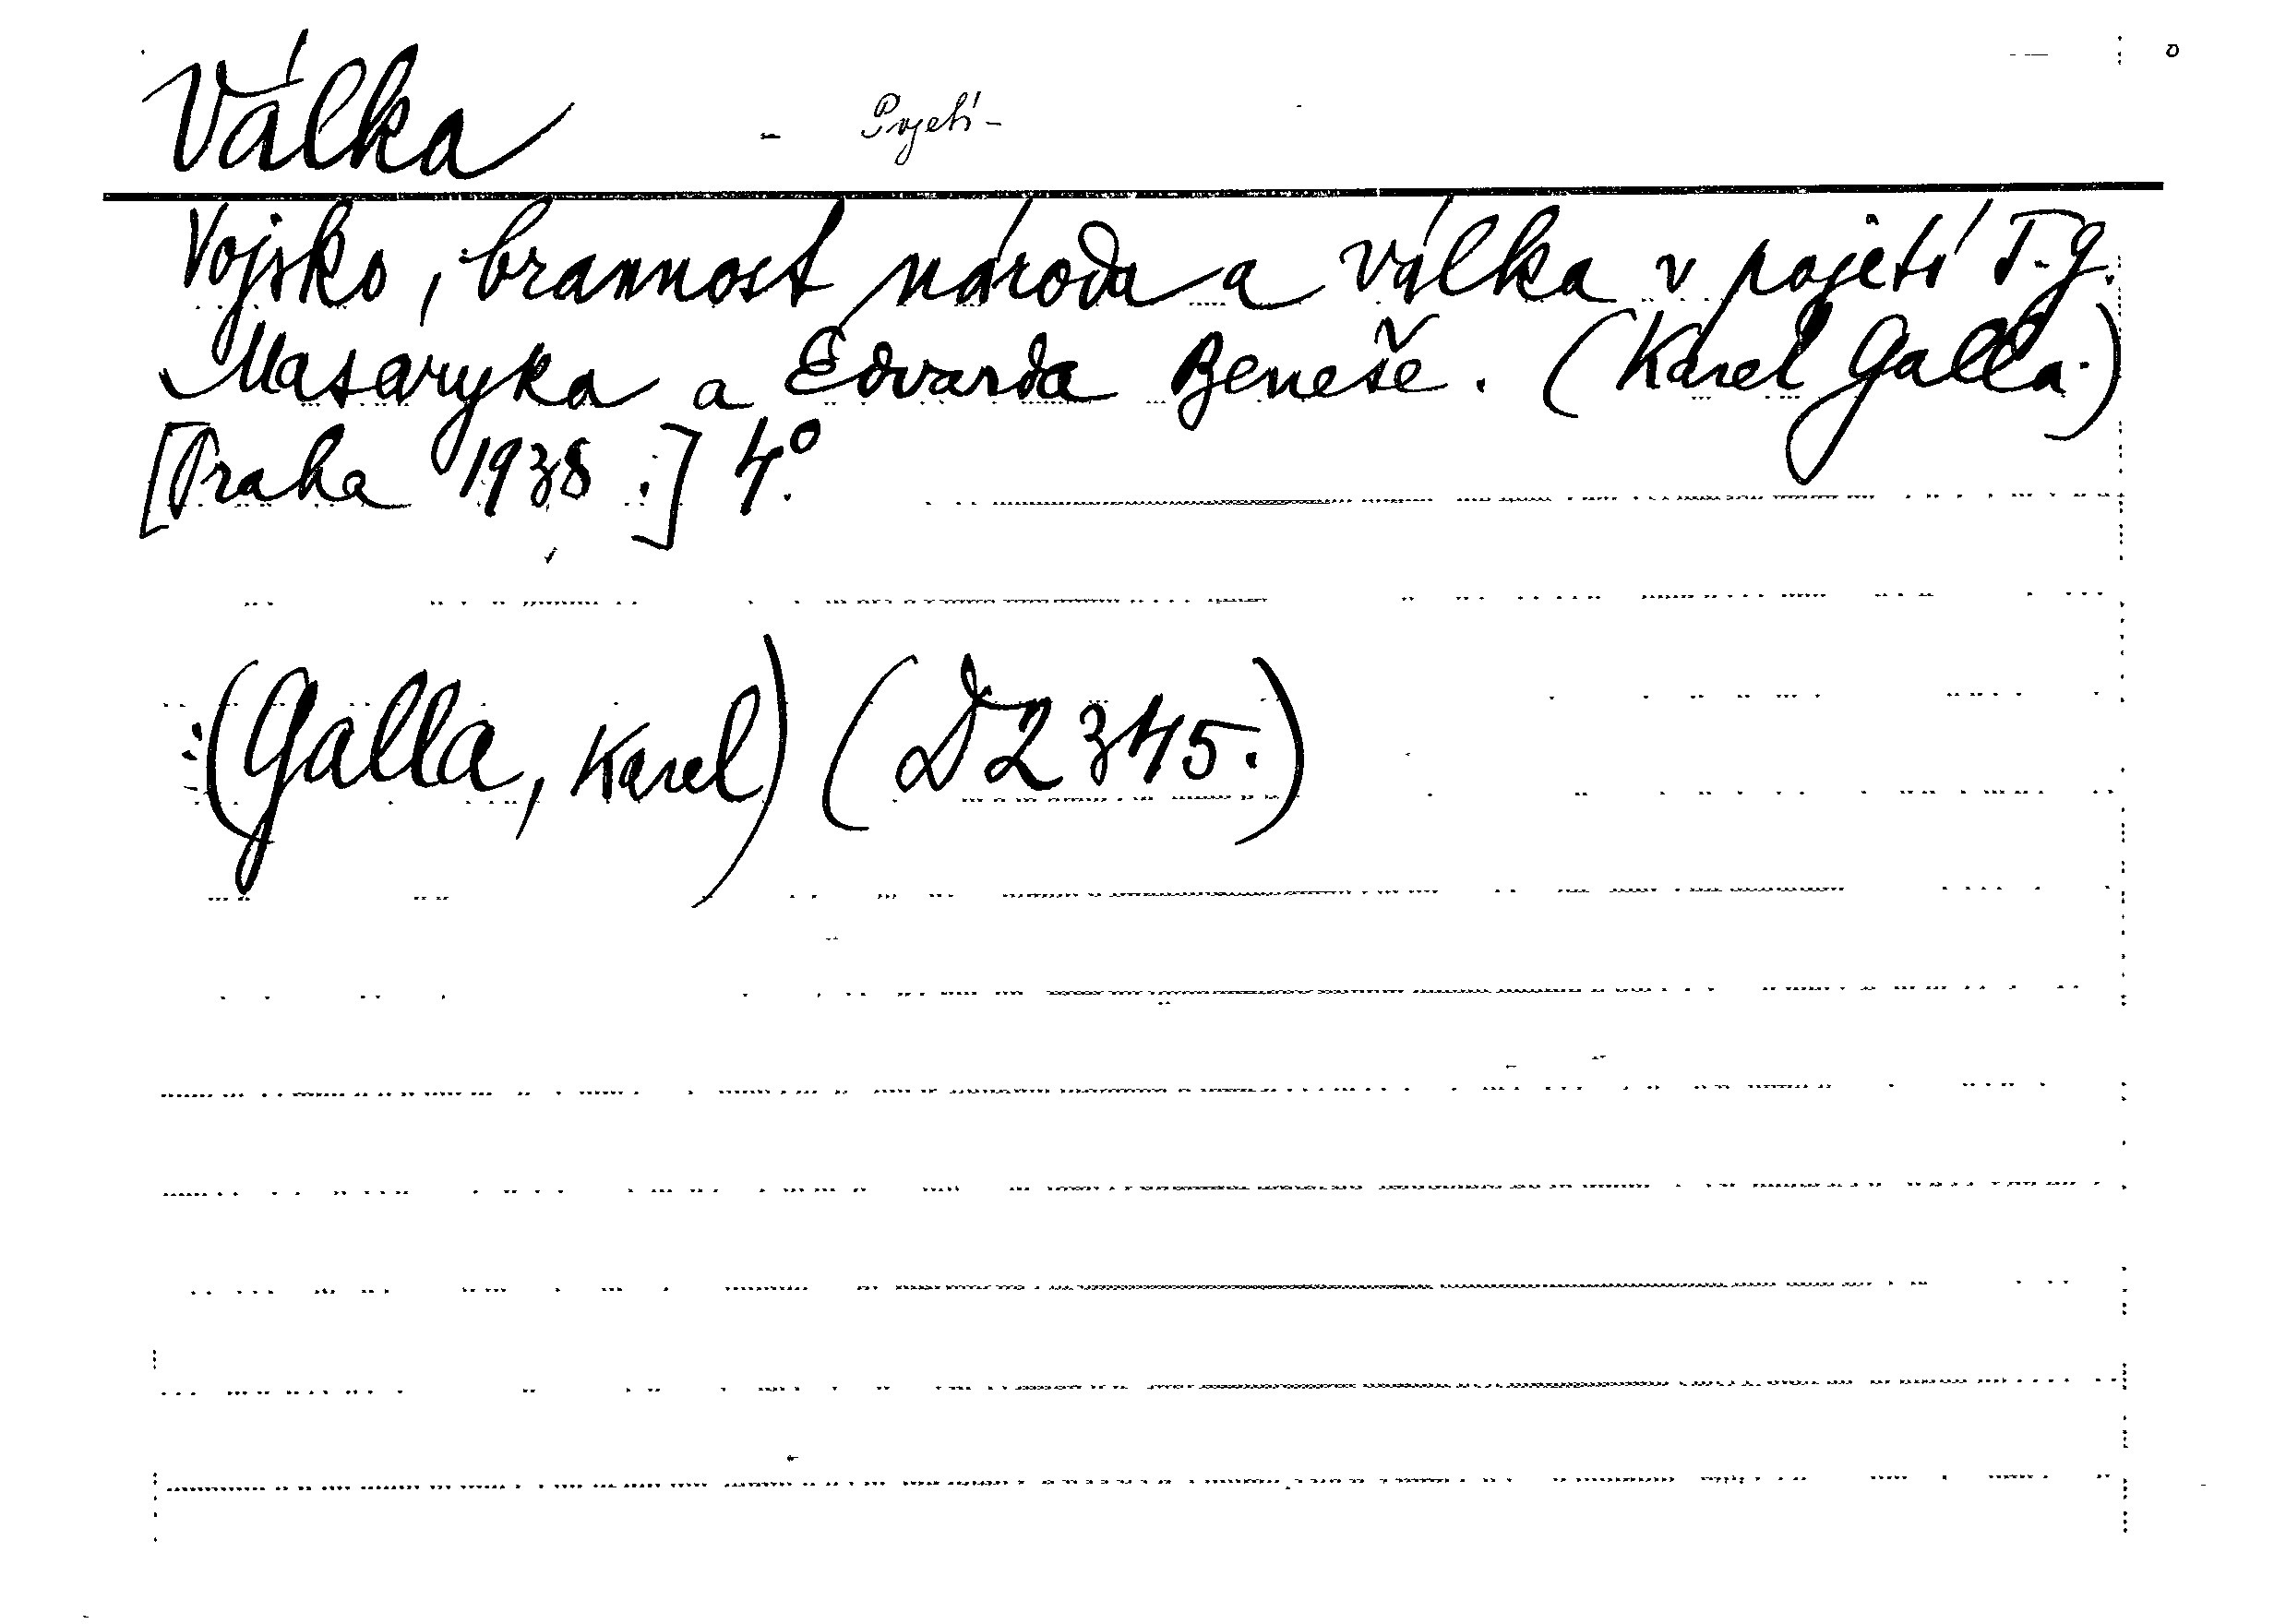 Válka - Pojetí -
Vojsko, brannost národa a válka v pojetí T. G.
Masaryka a Edvarda Beneše. (Karel Galla.)
[Praha 1938.] 4°.
(Galla, Karel) (D2345.)